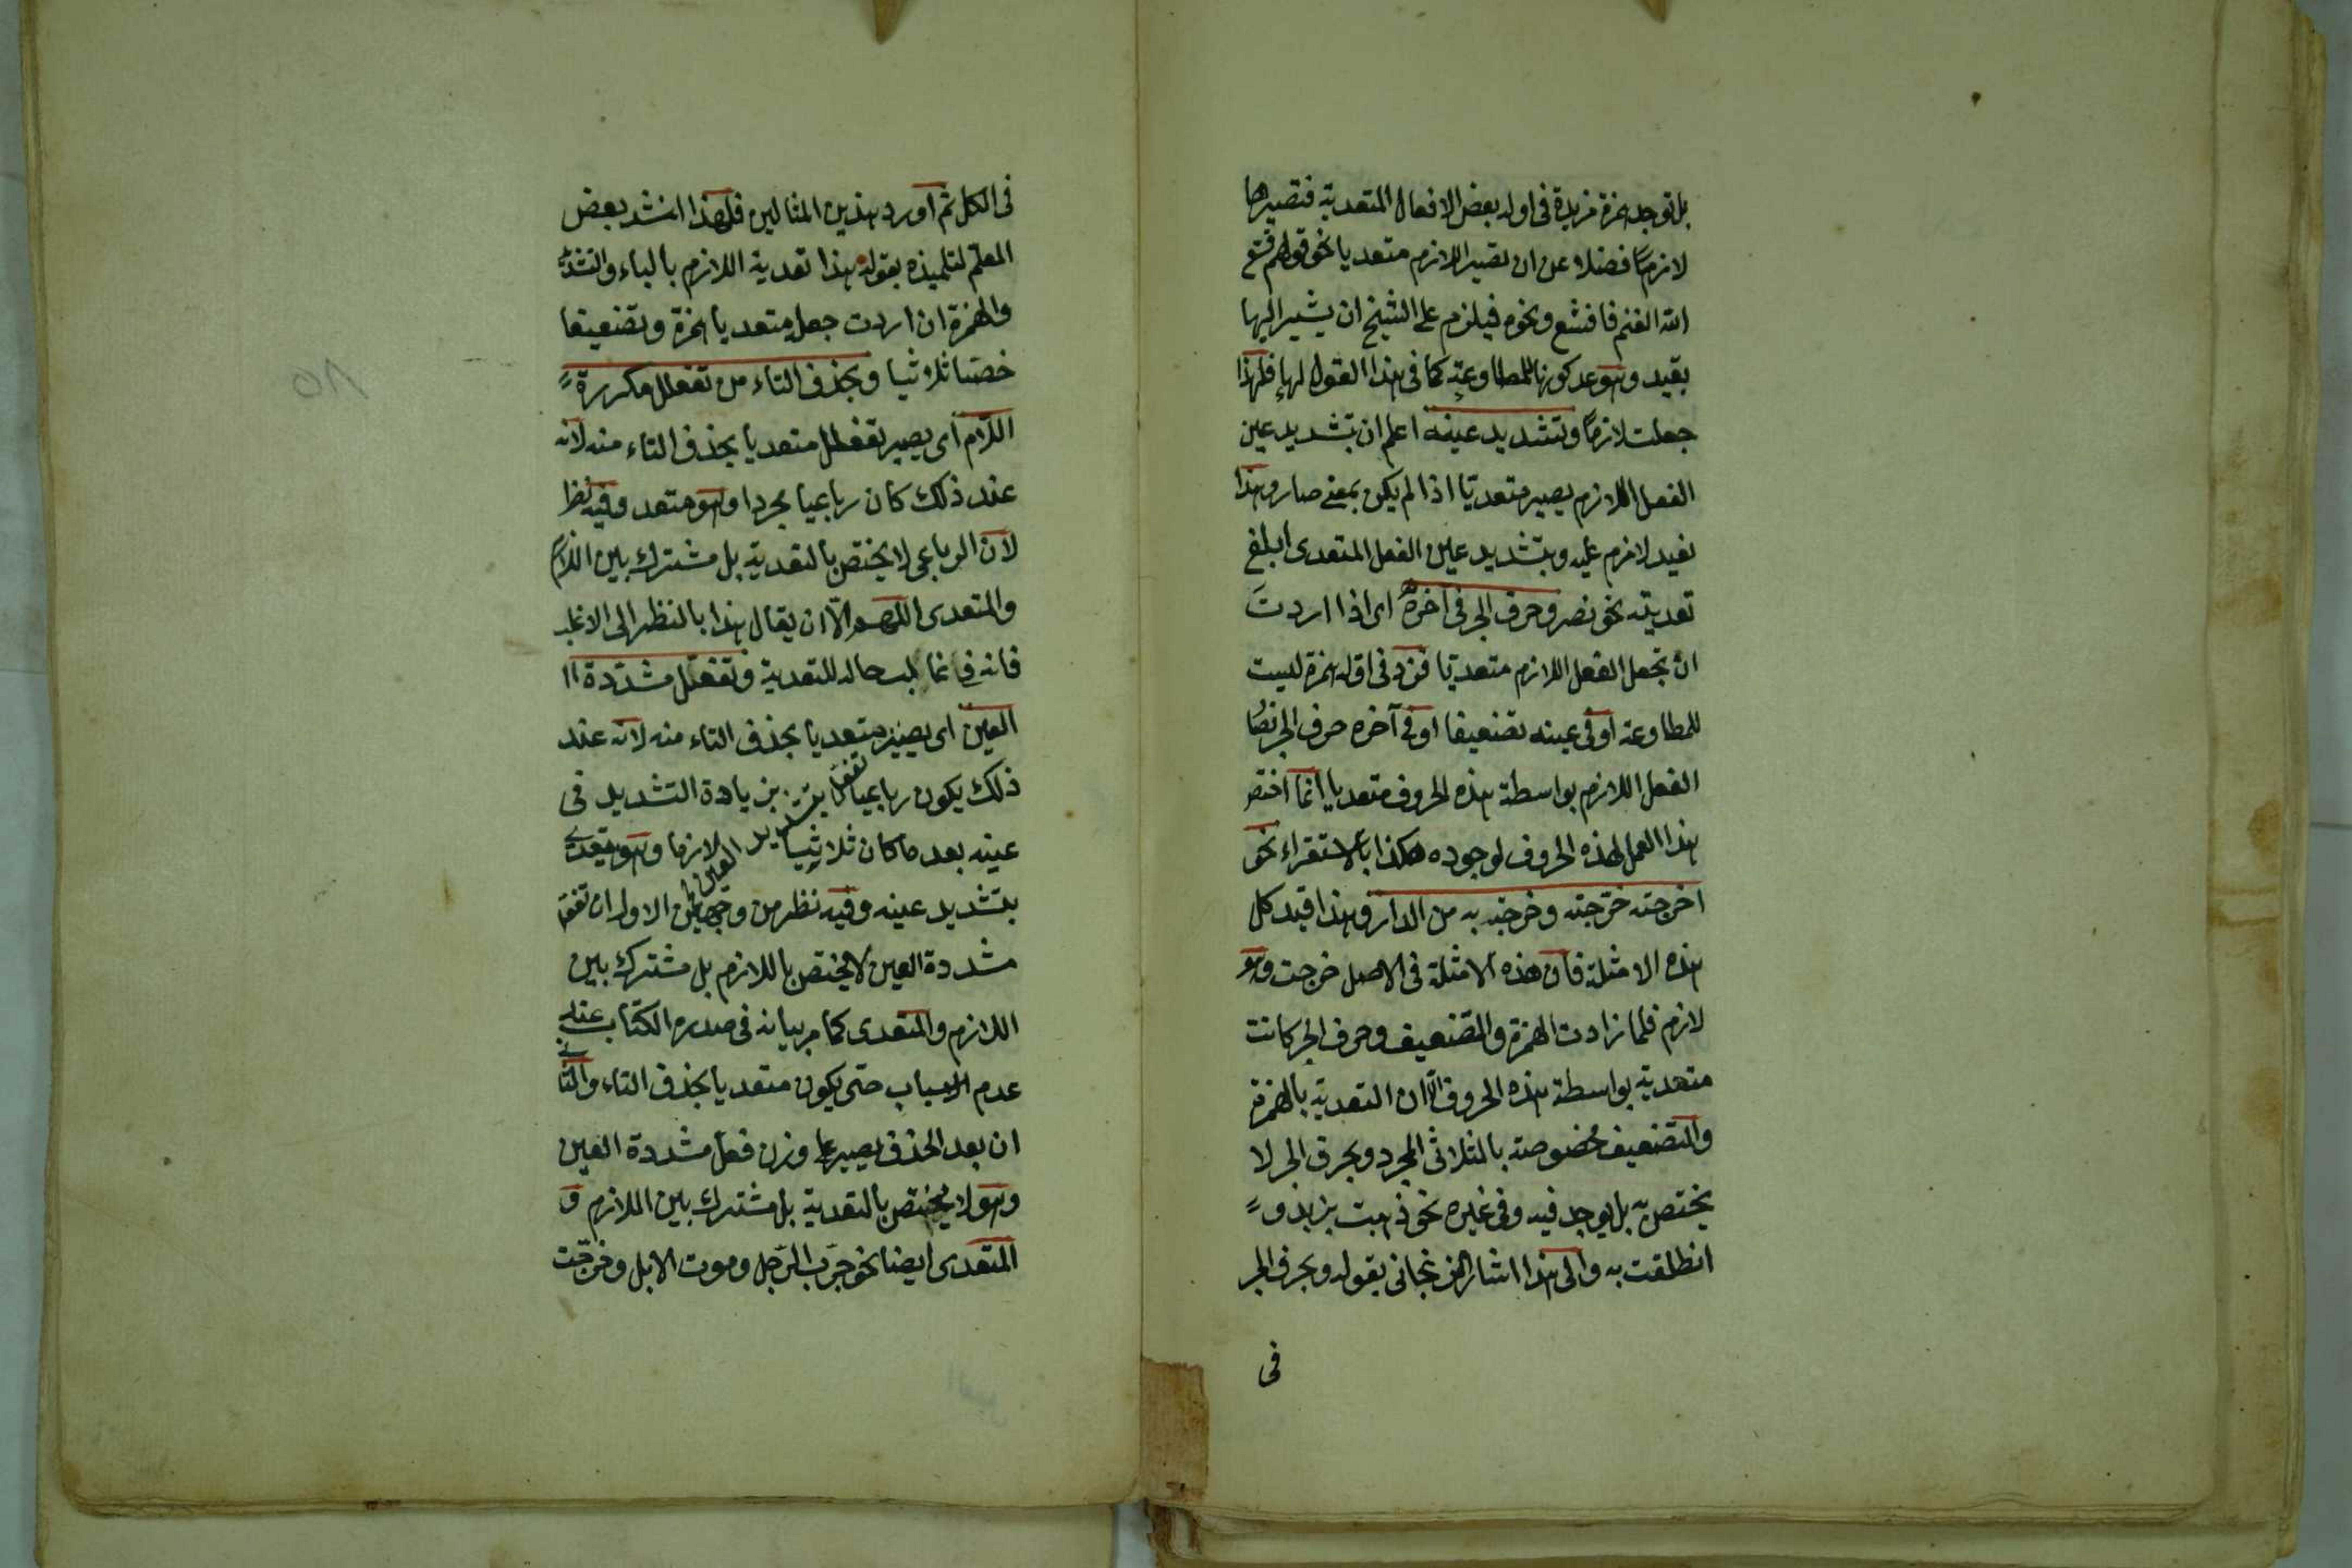 بل توجد همزة مزيدة فى اول بعض الافعال المتعدية فتصيرها
لازمًا فضلا عن ان تصير اللازم متعديا نحو قولهم قشع
الله الغنم فاقشع ونحوه فيلزم على الشيخ ان يشير اليها
بقيد وهو عدم كونها للمطاوعة كما فى هذا القول لها فلهذا
جعلت لازمًا وتشديد عينه اعلم ان تشديد عين
الفعل اللازم يصير متعديًا اذا لم يكن بمعنى صار وهذا
لقيد لازم عليه وبتشديد عين الفعل المتعدى ابلغ
تعديته نحو نصر وحرف الجر فى آخره اى اذا اردت
ان تجعل الفعل اللازم متعديا فزد فى اوله همزة ليست
للمطاوعة او فى عينه تضعيفا او فى آخره حرف الجر
الفعل اللازم بواسطة هذه الحروف متعديا انما اختص
هذا العمل لهذه الحروف لوجوده هكذا بالاستقراء نحو
اخرجته خرّجته وخرجت به من الدار وهذا قيد كل
هذه الامثلة فان هذه الامثلة فى الاصل خرجت وهو
لازم فلما زادت الهمزة والتضعيف وحرف الجر كانت
متعدية بواسطة هذه الحروف الّا ان التعدية بالهمزة
والتضعيف مخصوصة بالثلاثى المجرد وبحرف الجر لا
يختص به بل يوجد فيه وفى غيره نحو ذهبت بزيد و
انطلقت به والى هذا اشار الزنجانى بقوله وبحرف الجر
فى
فى الكل ثم اورد هذين المثالين فلهذا انشد بعض
المعلم لتلميذه بقوله هذا تعدية اللازم بالباء والتشديد
والهمزة ان اردت جعل متعديا همزة وتضعيفا
خصّا ثلاثيا وبحذف التاء من تفعلل مكررة
اللام اى يصير تفعلل متعديا بحذف التاء منه لانه
عند ذلك كان رباعيا مجردا وهو متعد وفيه نظر
لان الرباعى لا يختص بالتعدية بل مشترك بين اللازم
والمتعدى اللهم الّا ان يقال هذا بالنظر الى الاغلب
فانه فى غالب حاله للتعدية وتفعّل مشدّدة
العين اى يصير متعديا بحذف التاء منه لانه عند
ذلك يكون رباعيا بزيادة التشديد فى
عينه بعد ما كان ثلاثيا لازما وهو يتعدى
بتشديد عينه وفيه نظر من وجهين الاول ان تفعّل
مشددة العين لا يختص باللازم بل مشترك بين
اللازم والمتعدى كما مر بيانه فى صدر الكتاب عند
عدم الاسباب حتى يكون متعديا بحذف التاء والثانى
ان بعد الحذف يصير على وزن فعّل مشددة العين
وهو لا يختص بالتعدية بل مشترك بين اللازم و
المتعدى ايضا نحو جرّب الرّجل وموت الابل وخرّجت